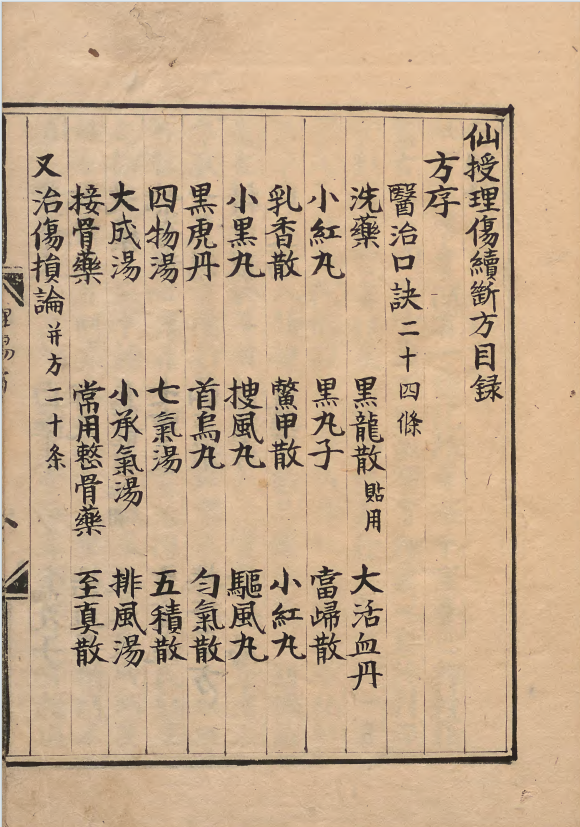 仙授理傷續斷方目録
方序
醫治口訣二十四條
洗藥 黑龍散貼用 大活血丹
小紅丸 黑丸子 當歸散
乳香散 鱉甲散 小紅丸
小黑丸 搜風丸 驅風丸
黑虎丹 首烏丸 勻氣散
四物湯 七氣湯 五積散
大成湯 小承氣湯 排風湯
接骨藥 常用整骨藥 至真散
又治傷損論并方二十条